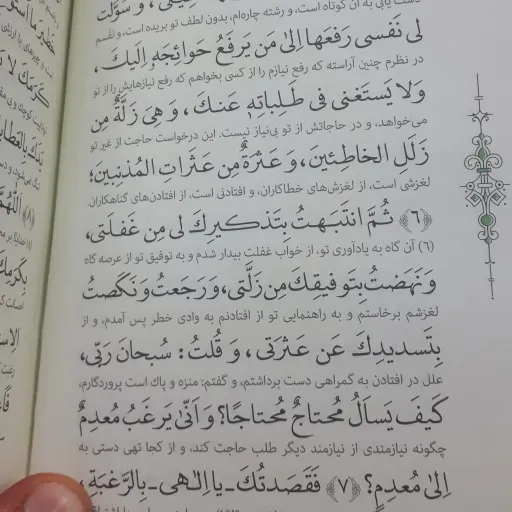 دست یابی به آن کوتاه است، و رشته چاره‌ام، بدون لطف تو بریده است، و نفسم
لی نَفسی رَفعَها اِلیٰ مَن یَرفَعُ حَوائِجَهٗ اِلَیكَ،
در نظرم چنین آراسته که رفع نیازم را از کسی بخواهم که رفع نیازهایش را از تو
وَلا یَستَغنی فی طَلِباتِهٖ عَنكَ، وَ هِیَ زَلَّةٌ مِن
می‌خواهد، و در حاجاتش از تو بی‌نیاز نیست. این درخواست حاجت از غیر تو
زَلَلِ الخاطِئینَ، وَ عَثرَةٌ مِن عَثَراتِ المُذنِبینَ؛
لغزشی است، از لغزش‌های خطاکاران، و افتادنی است، از افتادن‌های گناهکاران.
﴿٦﴾ ثُمَّ انتَبَهتُ بِتَذكیرِكَ لی مِن غَفلَتی،
(۶) آن گاه به یادآوری تو، از خواب غفلت بیدار شدم و به توفیق تو از عرصه گاه
وَ نَهَضتُ بِتَوفیقِكَ مِن زَلَّتی، وَ رَجَعتُ وَ نَكَصتُ
لغزشم برخاستم و به راهنمایی تو از افتادنم به وادی خطر پس آمدم، و از
بِتَسدیدِكَ عَن عَثرَتی، وَ قُلتُ: سُبحانَ رَبّی،
علل در افتادن به گمراهی دست برداشتم، و گفتم: منزه و پاك است پروردگارم،
كَیفَ یَسأَلُ مُحتاجٌ مُحتاجًا؟ وَ اَنّیٰ یَرغَبُ مُعدِمٌ
چگونه نیازمندی از نیازمند دیگر طلب حاجت کند، و از کجا تهی دستی به
اِلیٰ مُعدِمٍ؟ ﴿٧﴾ فَقَصَدتُكَ ـ یا اِلٰهی ـ بِالرَّغبَةِ،